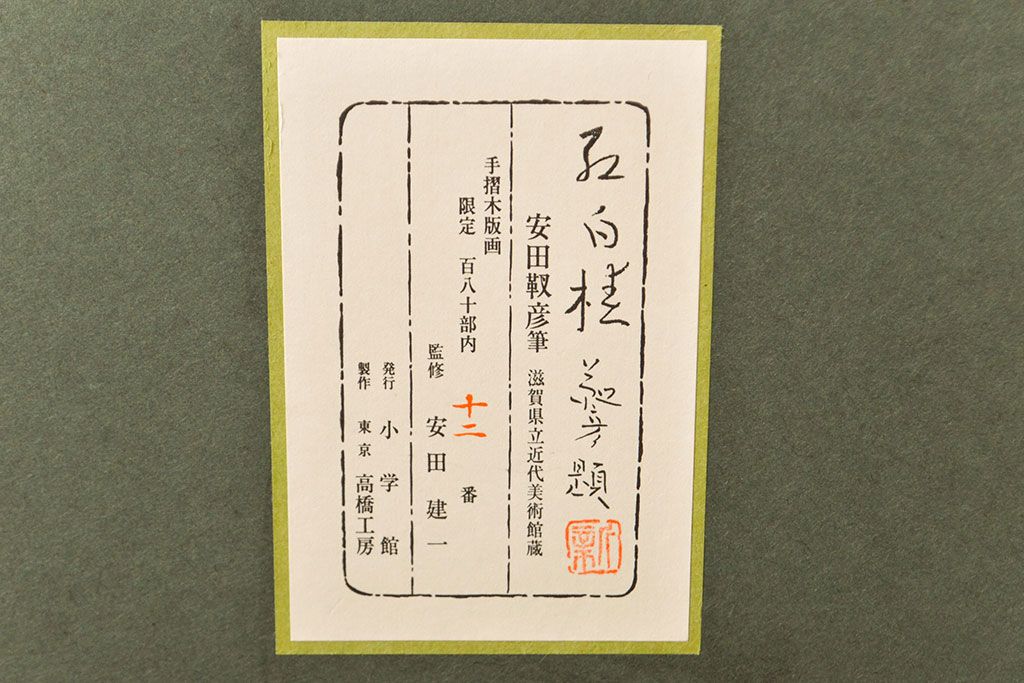 紅白梅 靫彦題
安田靫彦筆 滋賀県立近代美術館蔵
手摺木版画
限定 百八十部内 十二 番
監修 安田建一
発行 小学館
製作 東京 高橋工房